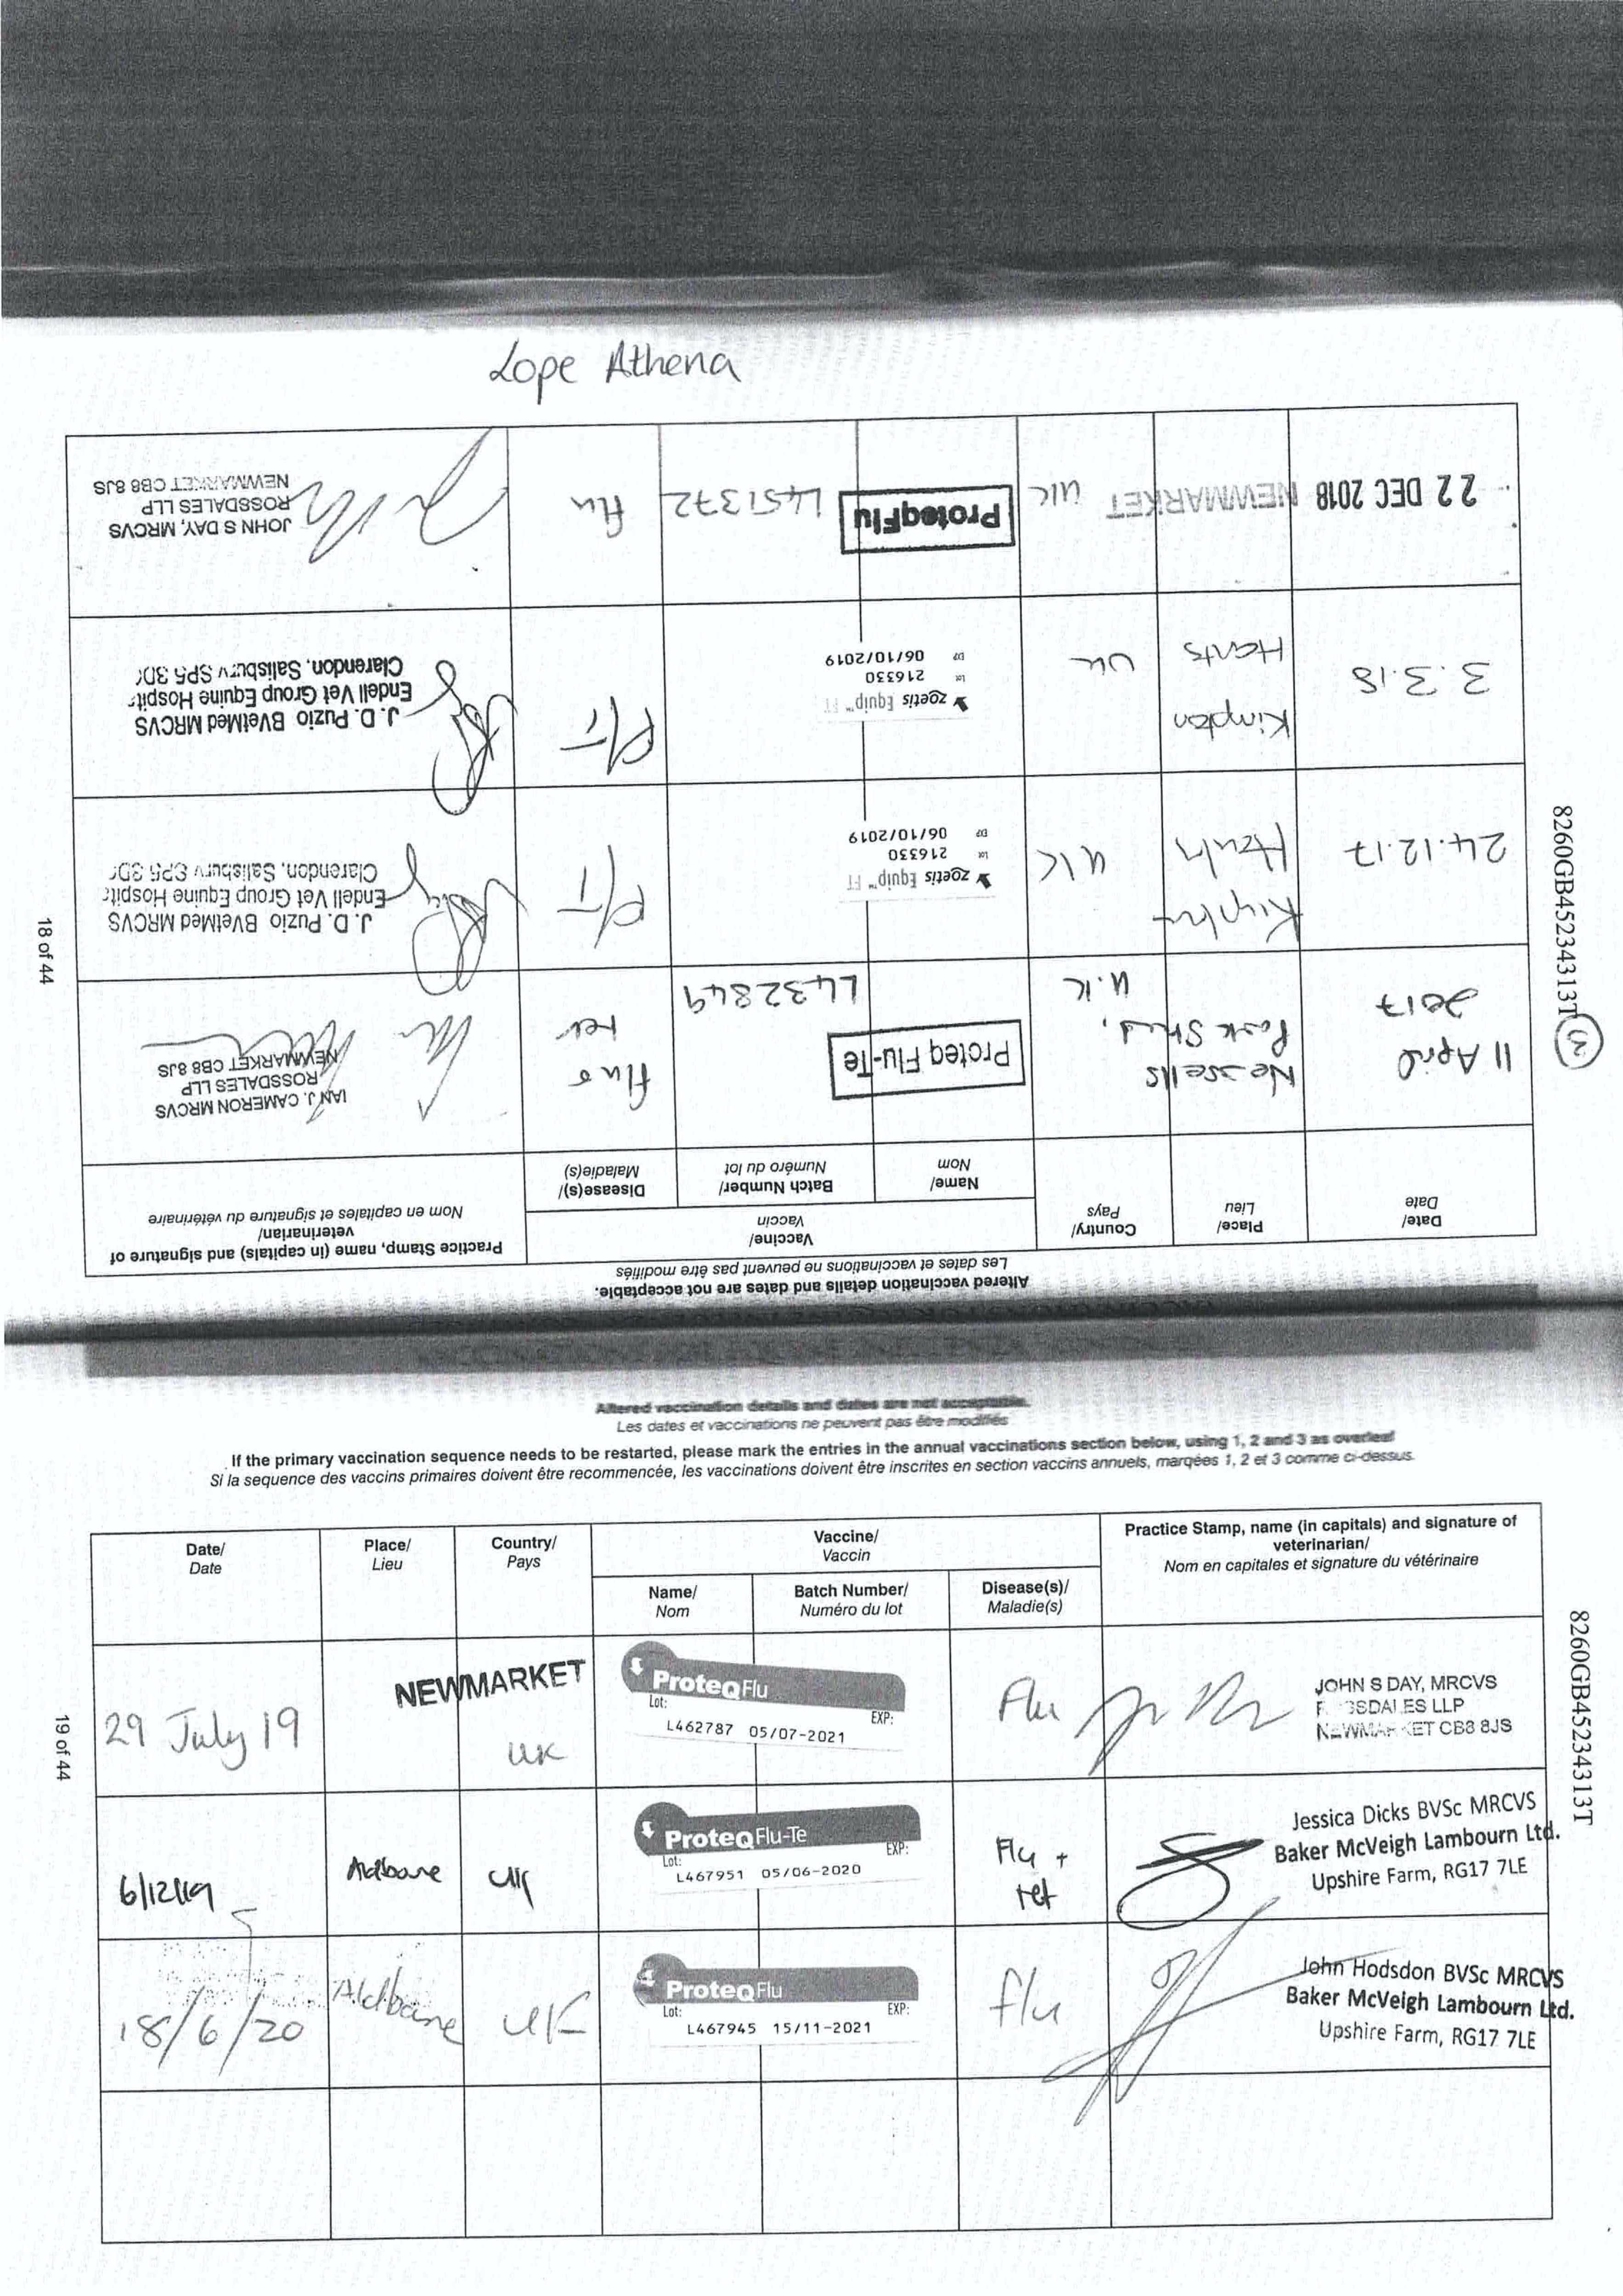 Lope Athena
Altered vaccination details and dates are not acceptable.
Les dates et vaccinations ne peuvent pas être modifiés
Date/
Date
Place/
Lieu
Country/
Pays
Vaccine/
Vaccin
Name/
Nom
Batch Number/
Numéro du lot
Disease(s)/
Maladie(s)
Practice Stamp, name (in capitals) and signature of
veterinarian/
Nom en capitales et signature du vétérinaire
8260GB45234313T
3
11 April
2017
Nessells
Park Stud,
U.K
Proteq Flu-Te
L432849
flu &
tet
IAN J. CAMERON MRCVS
ROSSDALES LLP
NEWMARKET CB8 8JS
24.12.17
UK
zoetis Equip™ FT
lot 216330
exp 06/10/2019
F/T
J. D. Puzio BVetMed MRCVS
Endell Vet Group Equine Hospit
Clarendon, Salisbury SP5 3D
3.3.18
Kimpton
Hants
UK
zoetis Equip™ FT
lot 216330
exp 06/10/2019
F/T
J. D. Puzio BVetMed MRCVS
Endell Vet Group Equine Hospit
Clarendon, Salisbury SP5 3D
22 DEC 2018
NEWMARKET
UK
ProteqFlu
L451372
flu
JOHN S DAY, MRCVS
ROSSDALES LLP
NEWMARKET CB8 8JS
18 of 44
Altered vaccination details and dates are not acceptable.
Les dates et vaccinations ne peuvent pas être modifiés
If the primary vaccination sequence needs to be restarted, please mark the entries in the annual vaccinations section below, using 1, 2 and 3 as overleaf
Si la sequence des vaccins primaires doivent être recommencée, les vaccinations doivent être inscrites en section vaccins annuels, marqées 1, 2 et 3 comme ci-dessus.
Date/
Date
Place/
Lieu
Country/
Pays
Vaccine/
Vaccin
Name/
Nom
Batch Number/
Numéro du lot
Disease(s)/
Maladie(s)
Practice Stamp, name (in capitals) and signature of
veterinarian/
Nom en capitales et signature du vétérinaire
8260GB45234313T
29 July 19
NEWMARKET
UK
ProteqFlu
Lot: EXP:
L462787 05/07-2021
Flu
JOHN S DAY, MRCVS
ROSSDALES LLP
NEWMARKET CB8 8JS
6/12/19
Aldbourne
UK
ProteqFlu-Te
Lot: EXP:
L467951 05/06-2020
Flu +
tet
Jessica Dicks BVSc MRCVS
Baker McVeigh Lambourn Ltd.
Upshire Farm, RG17 7LE
18/6/20
Aldbourne
UK
ProteqFlu
Lot: EXP:
L467945 15/11-2021
flu
John Hodsdon BVSc MRCVS
Baker McVeigh Lambourn Ltd.
Upshire Farm, RG17 7LE
19 of 44